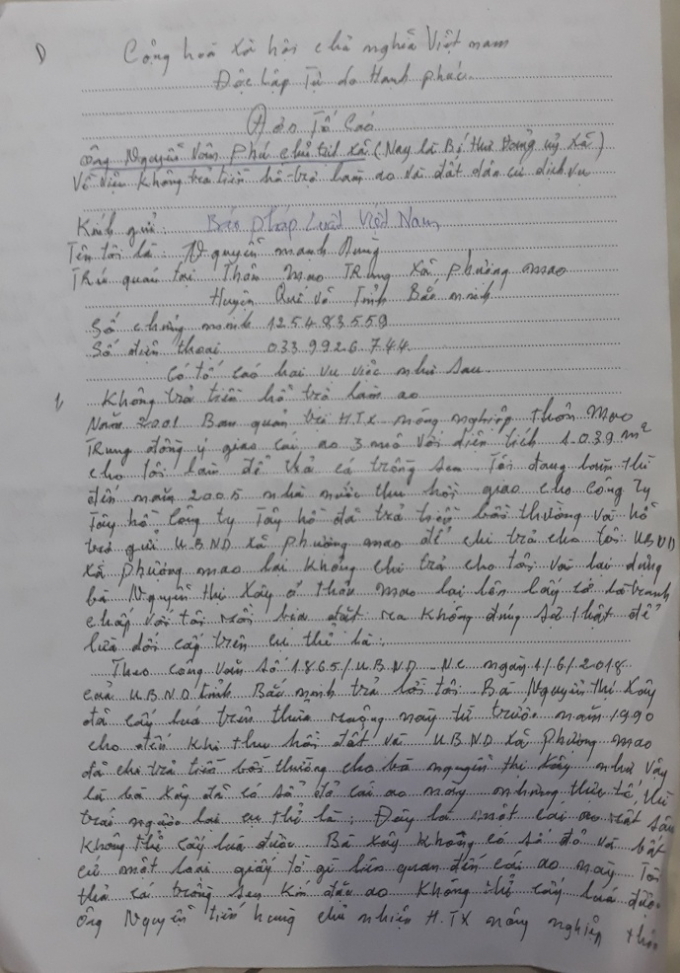 Cộng hoà xã hội chủ nghĩa Việt nam
Độc lập Tự do Hạnh phúc
Đơn Tố Cáo
ông Nguyễn Văn Phú chủ tịch xã (Nay là Bí thư Đảng uỷ xã)
Về việc không trả tiền hỗ trợ làm ao và đất dân cư dịch vụ
Kính gửi: Báo Pháp Luật Việt Nam
Tên tôi là: Nguyễn mạnh Hùng
Trú quán tại Thôn Mao Trung xã Phượng mao
Huyện Quế võ Tỉnh Bắc ninh
Số chứng minh 125483559
Số điện thoại 033.992.6.744
Có tố cáo hai vụ việc như sau
1 Không trả tiền hỗ trợ làm ao
Năm 2001 Ban quản trị H.T.X nông nghiệp thôn Mao
Trung đồng ý giao cái ao 3 mẫu với diện tích 1.039 m²
cho tôi làm để thả cá trồng sen Tôi đang làm thì
đến năm 2005 nhà nước thu hồi giao cho Công Ty
Tây hồ Công ty Tây hồ đã trả tiền bồi thường và hỗ
trợ gửi U.B.N.D xã Phượng mao để chi trả cho tôi U.B.N.D
xã phượng mao lại không chi trả cho tôi và lại dựng
bà Nguyễn thị Xây ở thôn mao lại lên lấy cớ là tranh
chấp với tôi rồi bịa đặt ra không đúng sự thật để
lừa dối cấp trên cụ thể là:
Theo công văn số 1865/U.B.N.D - N.C ngày 1/6/2018
của U.B.N.D tỉnh Bắc ninh trả lời tôi Bà Nguyễn thị Xây
đã cấy lúa trên thửa ruộng này từ trước năm 1990
cho đến khi thu hồi đất và U.B.N.D xã Phượng mao
đã chi trả tiền bồi thường cho bà nguyễn thị Xây như vậy
là bà Xây đã có sổ đỏ cái ao này nhưng thực tế thì
trái ngược lại cụ thể là: Đây là một cái ao rất sâu
không thể cấy lúa được Bà Xây không có sổ đỏ và bất
cứ một loại giấy tờ gì liên quan đến cái ao này Tôi
thả cá trồng sen kín đầu ao không thể cấy lúa được
ông Nguyễn tiến hưng chủ nhiệm H.T.X nông nghiệp thôn